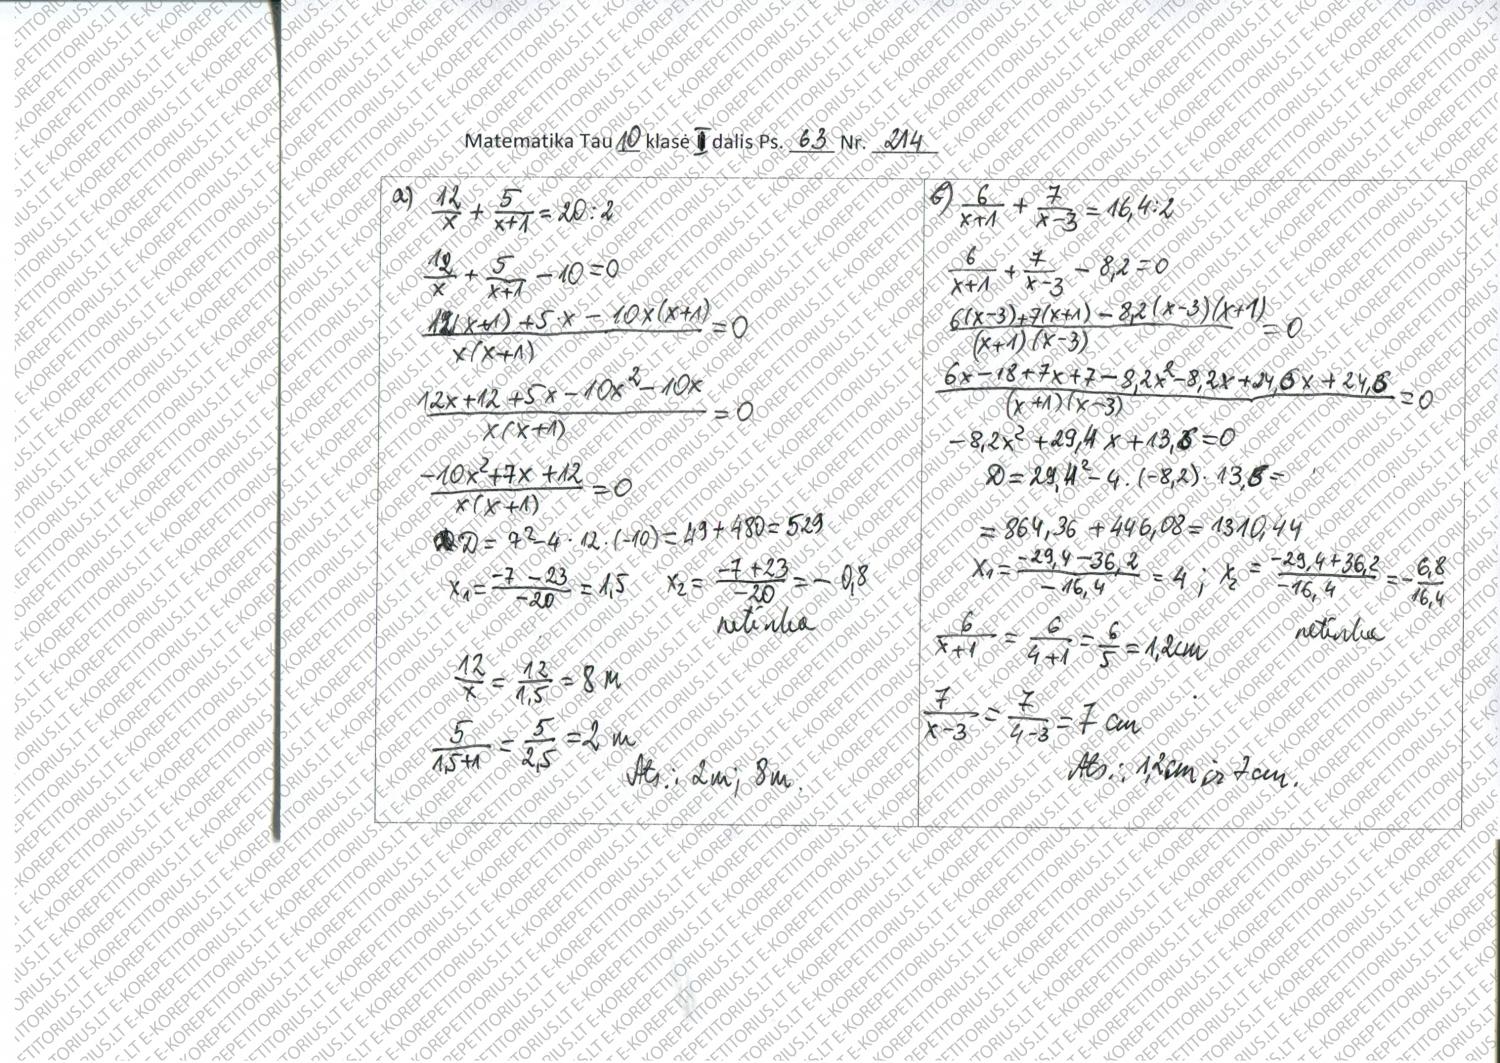 Matematika Tau 10 klasė II dalis Ps. 63 Nr. 214
a) 12/x + 5/(x+1) = 20:2
12/x + 5/(x+1) − 10 = 0
(12(x+1) + 5·x − 10x(x+1))/(x(x+1)) = 0
(12x+12+5x−10x²−10x)/(x(x+1)) = 0
(−10x²+7x+12)/(x(x+1)) = 0
D = 7²−4·12·(−10) = 49+480 = 529
x₁ = (−7−23)/(−20) = 1,5 x₂ = (−7+23)/(−20) = −0,8
netinka
12/x = 12/1,5 = 8 m
5/(1,5+1) = 5/2,5 = 2 m
Ats.: 2m; 8m.
b) 6/(x+1) + 7/(x−3) = 16,4:2
6/(x+1) + 7/(x−3) − 8,2 = 0
(6(x−3)+7(x+1)−8,2(x−3)(x+1))/((x+1)(x−3)) = 0
(6x−18+7x+7−8,2x²−8,2x+24,6x+24,6)/((x+1)(x−3)) = 0
−8,2x²+29,4x+13,6=0
D = 29,4²−4·(−8,2)·13,6=
= 864,36 + 446,08 = 1310,44
x₁ = (−29,4−36,2)/(−16,4) = 4; x₂ = (−29,4+36,2)/(−16,4) = −6,8/16,4
netinka
6/(x+1) = 6/(4+1) = 6/5 = 1,2cm
7/(x−3) = 7/(4−3) = 7 cm
Ats.: 1,2cm ir 7cm.
E-KOREPETITORIUS.LT